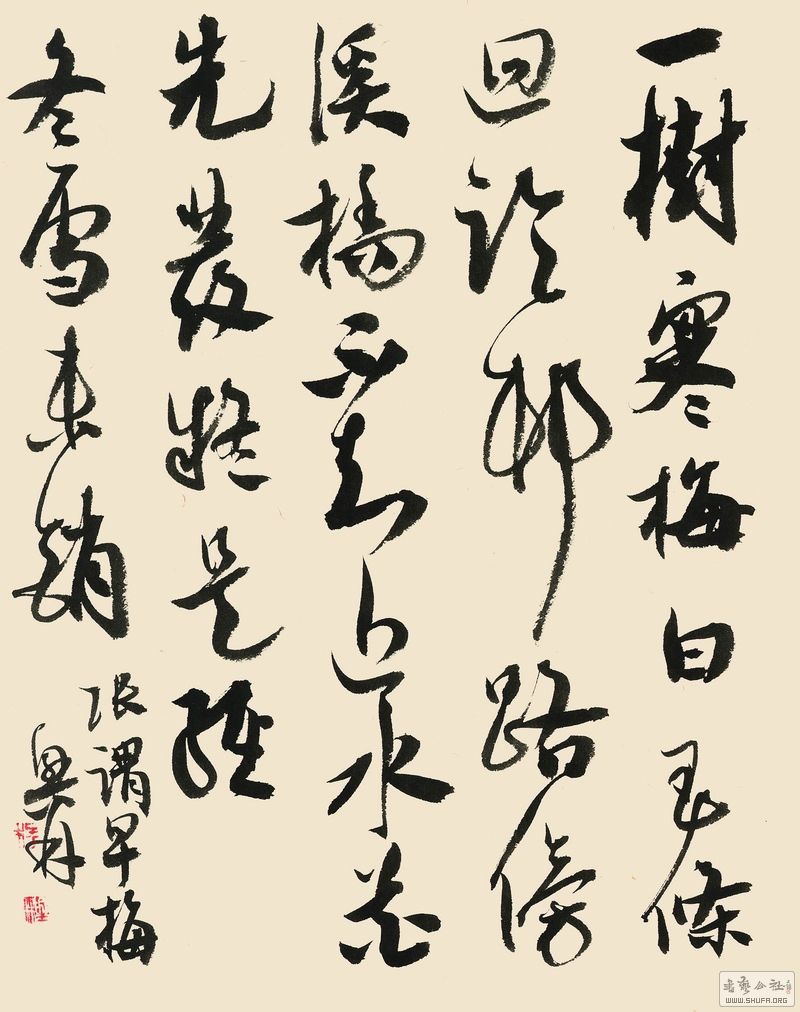 一樹寒梅白玉條
迥臨邨路傍
溪橋不知近水花
先發疑是經
冬雪未銷
張謂早梅
書藝公社
WWW.SHUFA.ORG